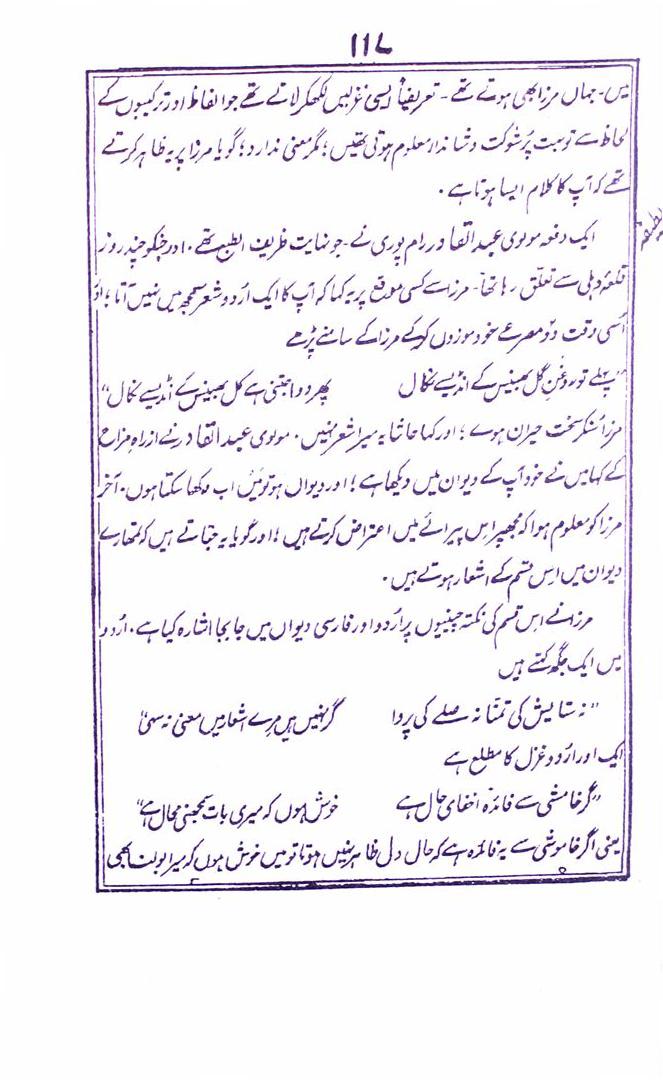 ۱۱۷
میں۔ جہاں مرزا بھی ہوتے تھے۔ تعریضاً ایسی غزلیں لکھکر لاتے تھے جو الفاظ اور ترکیبوں کے
لحاظ سے تو بہت پُرشوکت و شاندار معلوم ہوتی تھیں؛ مگر معنی ندارد؛ گویا مرزا پر یہ ظاہر کرتے
تھے کہ آپ کا کلام ایسا ہوتا ہے۔
لطیفہ
ایک دفعہ مولوی عبدالقادر رام پوری نے۔ جو نہایت ظریف الطبع تھے۔ اور جنکو چند روز
قلعۂ دہلی سے تعلق رہا تھا۔ مرزا سے کسی موقع پر یہ کہا کہ آپ کا ایک اُردو شعر سمجھ میں نہیں آتا؛ اوُ
اُسی وقت دو مصرعے خود موزوں کر کے مرزا کے سامنے پڑھے
"پہلے تو روغنِ گُل بھینس کے انڈے سے نکال پھر دوا جتنی ہے کل بھینس کے انڈے سے نکال"
مرزا سُنکر سخت حیران ہوے؛ اور کہا حاشا یہ میرا شعر نہیں۔ مولوی عبدالقادر نے از راہِ مزاح
کے کہا میں نے خود آپ کے دیوان میں دیکھا ہے؛ اور دیوان ہو تو میں اب دکھا سکتا ہوں۔ آخر
مرزا کو معلوم ہوا کہ مجھپر اس پیرائے میں اعتراض کرتے ہیں؛ اور گویا یہ جتاتے ہیں کہ تمھارے
دیوان میں اس قسم کے اشعار ہوتے ہیں۔
مرزا نے اس قسم کی نکتہ چینیوں پر اُردو اور فارسی دیوان میں جابجا اشارہ کیا ہے۔ اُردو
میں ایک جگہ کہتے ہیں
"نہ ستایش کی تمنّا نہ صلے کی پروا گر نہیں ہیں مرے اشعار میں معنی نہ سہی"
ایک اور اُردو غزل کا مطلع ہے
"گر خامشی سے فائدہ اخفای حال ہے خوش ہوں کہ میری بات سمجھنی محال ہے"
یعنی اگر خاموشی سے یہ فائدہ ہے کہ حال دل ظاہر نہیں ہوتا تو میں خوش ہوں کہ میرا بولنا بھی